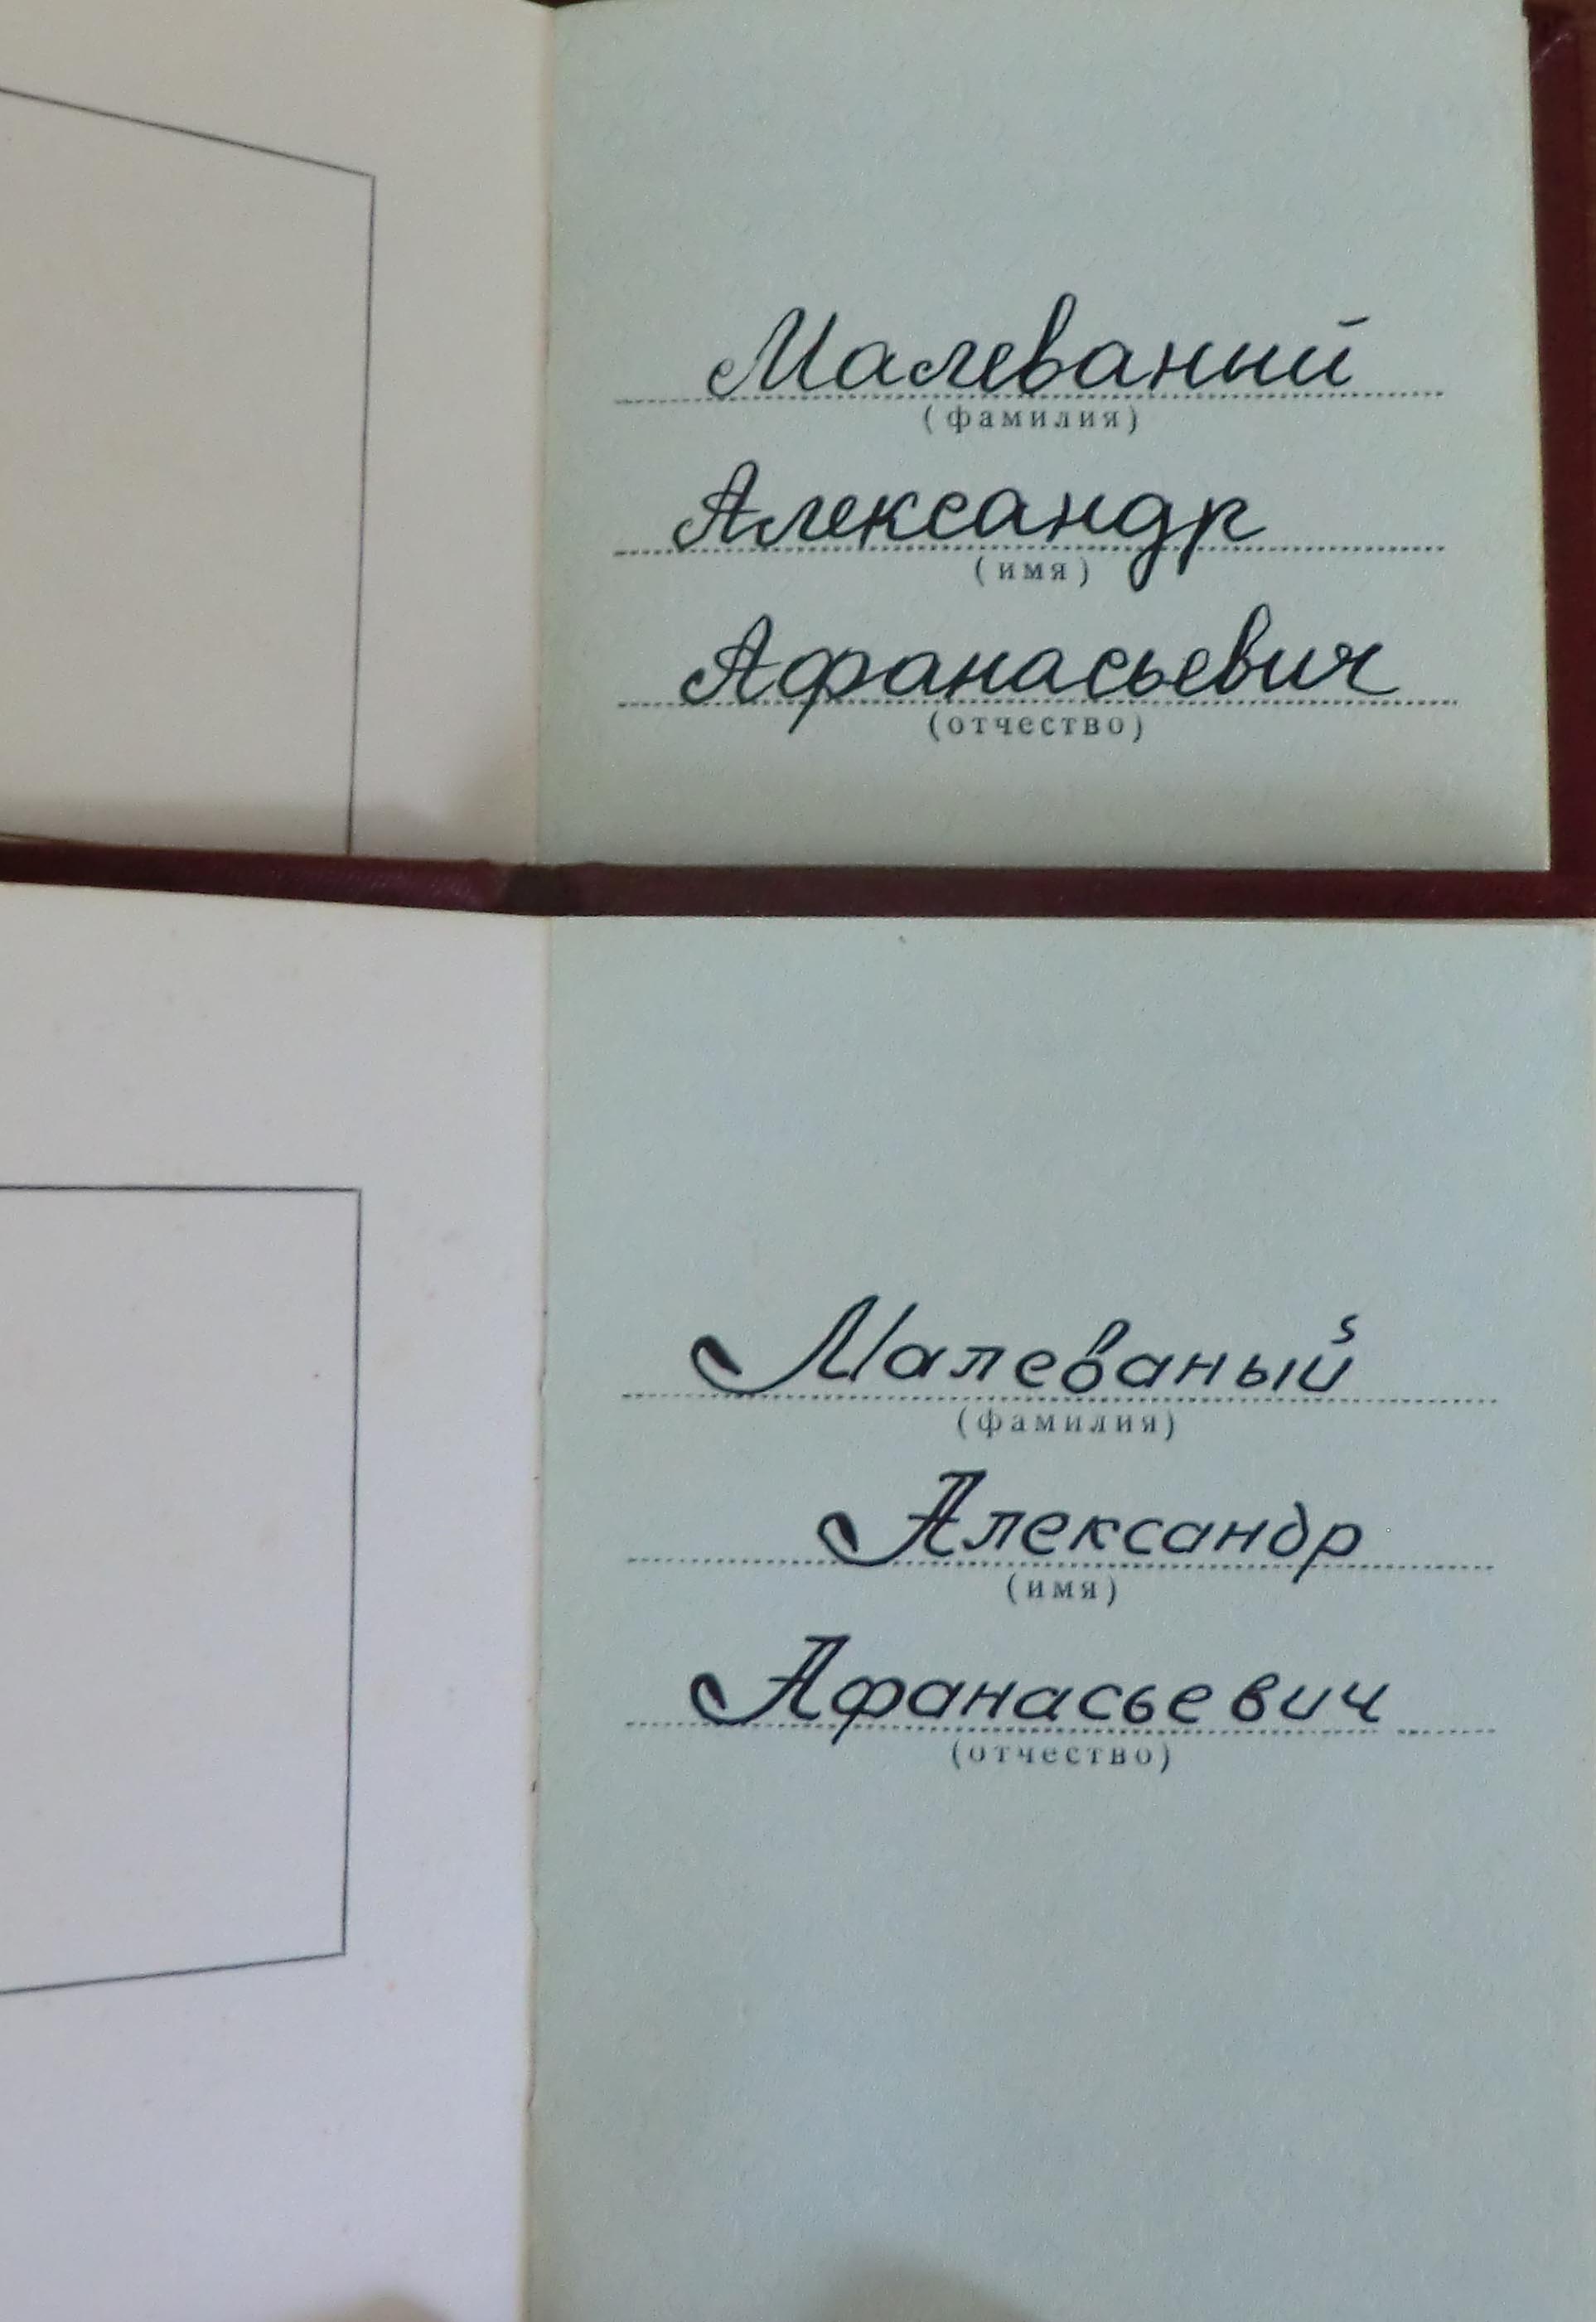 Малеваний
(фамилия)
Александр
(имя)
Афанасьевич
(отчество)
Малеваный
(фамилия)
Александр
(имя)
Афанасьевич
(отчество)